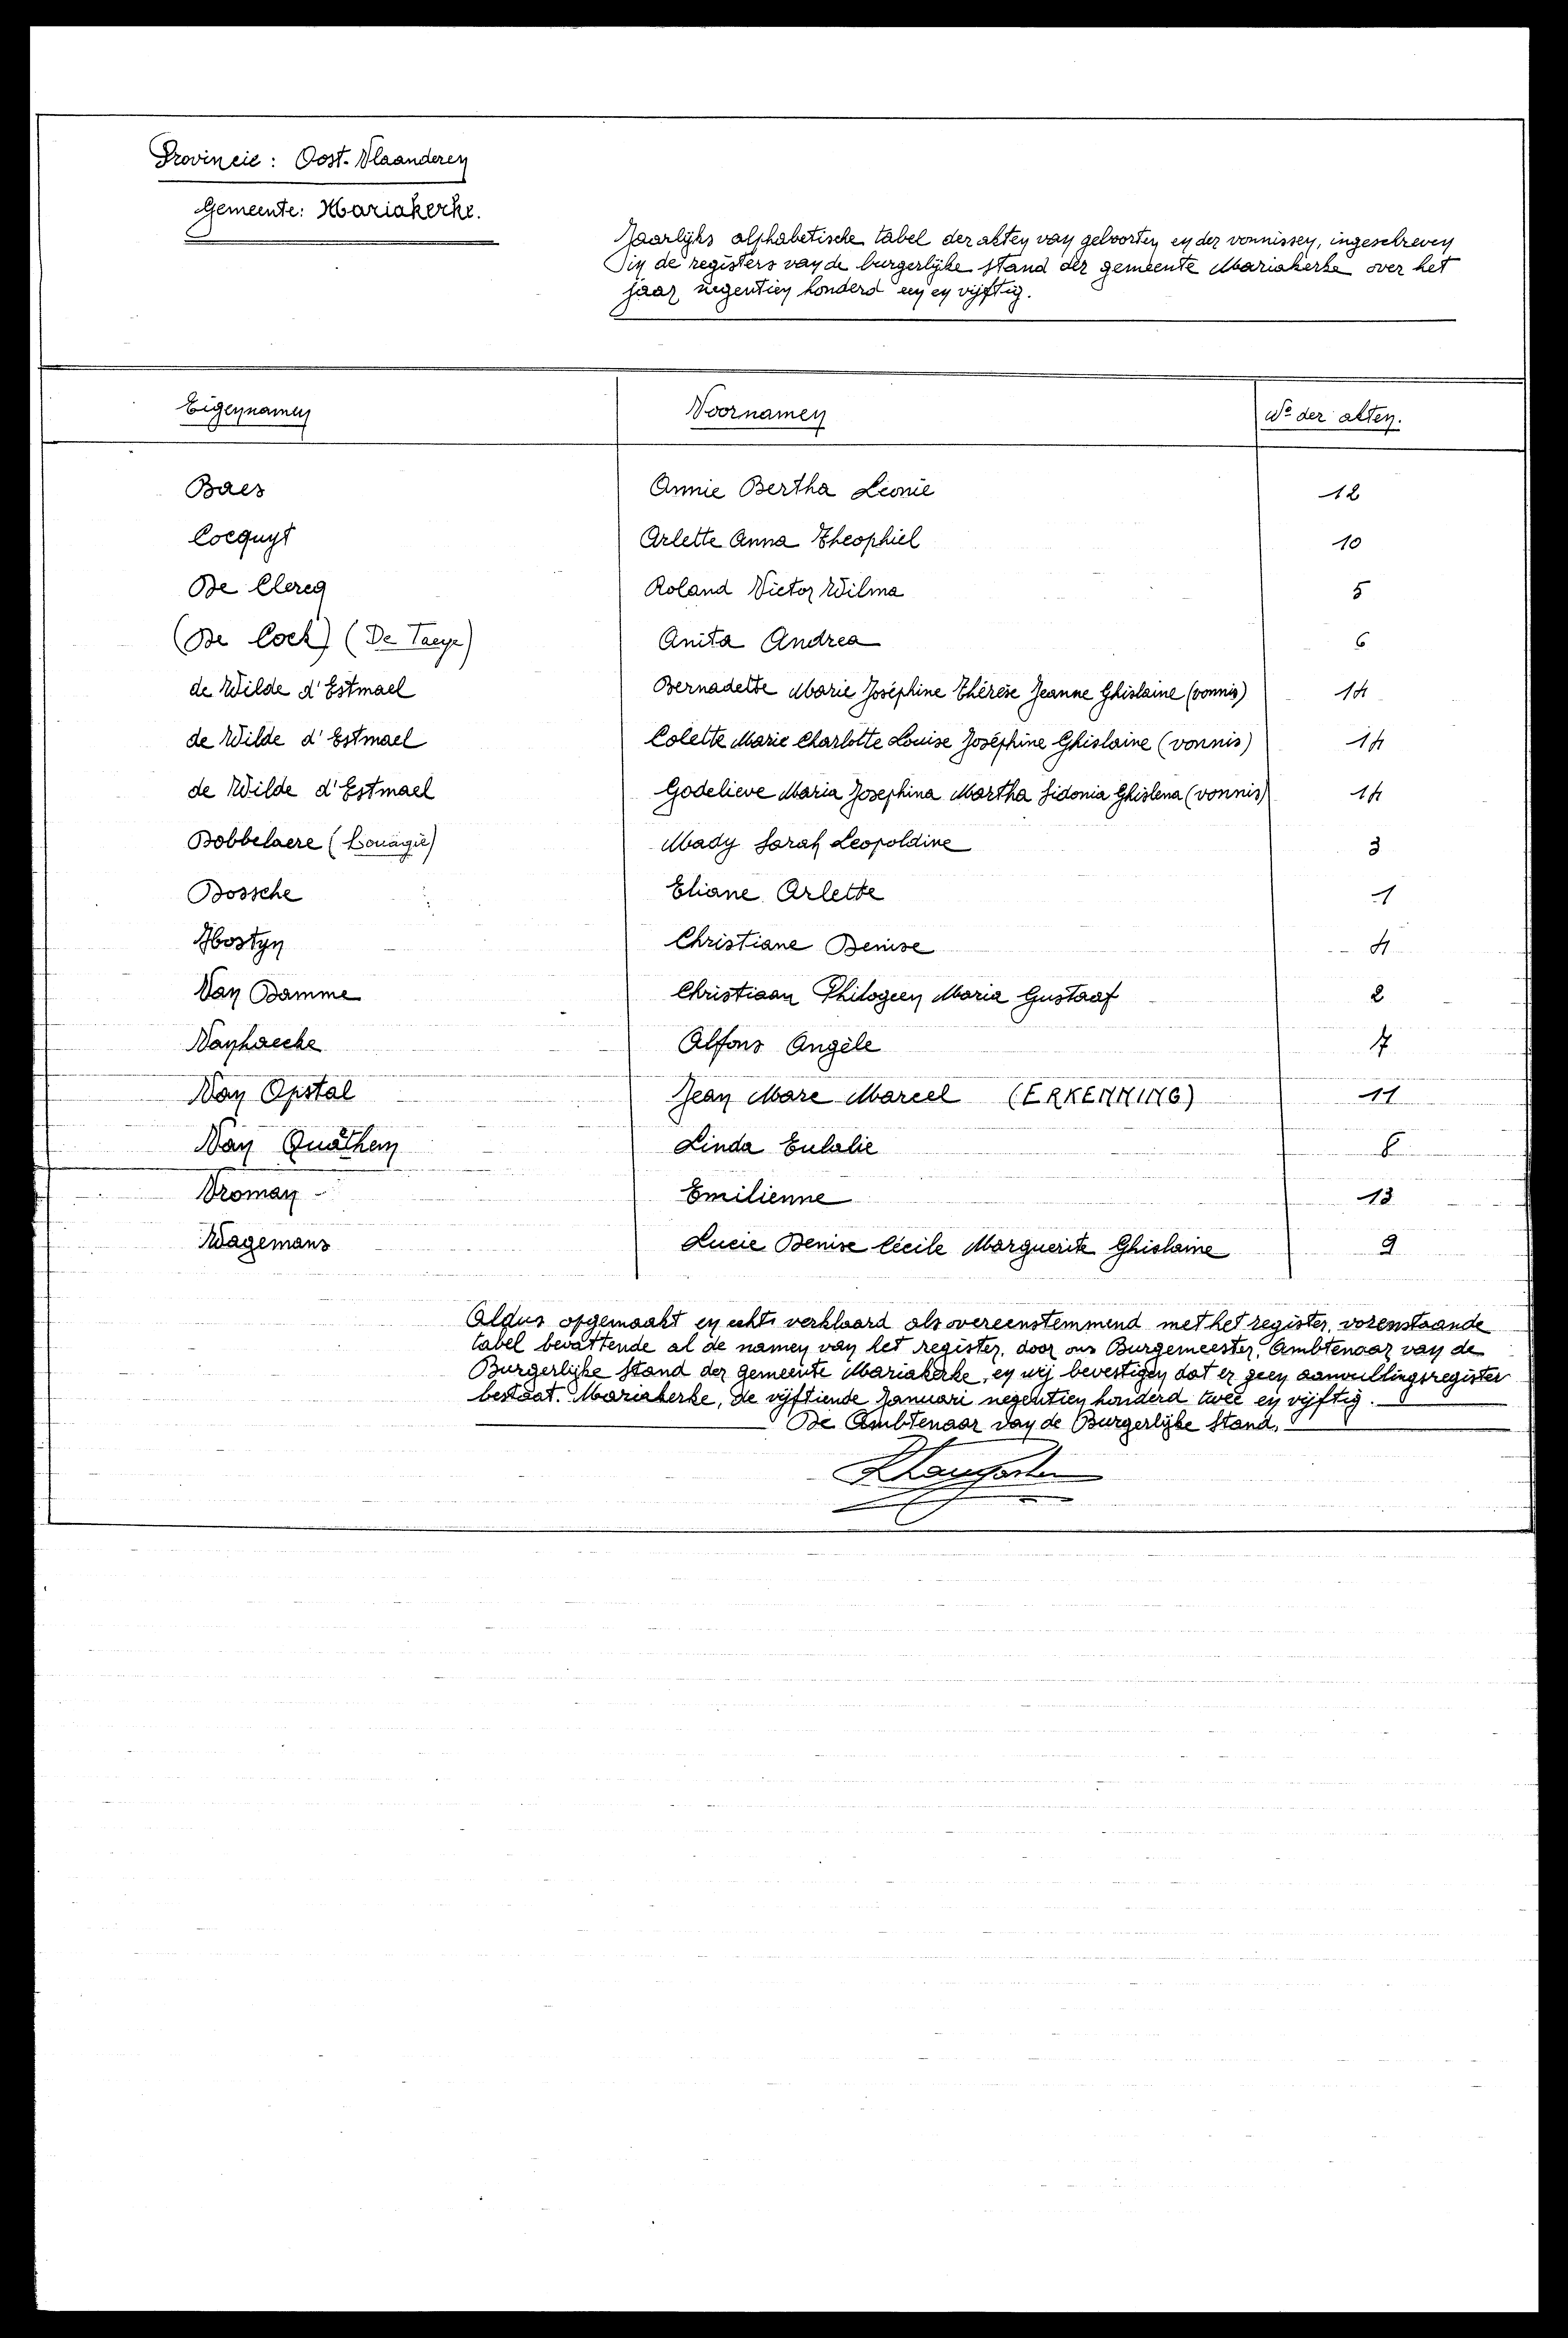 Provincie: Oost-Vlaanderen
Gemeente: Mariakerke.
Jaarlijks alphabetische tabel der akten van geboorten en der vonnissen, ingeschreven
in de registers van de burgerlijke stand der gemeente Mariakerke over het
jaar negentien honderd een en vijftig.
Eigennamen Voornamen No der akten.
Baes Annie Bertha Léonie 12
Cocquyt Arlette Anna Theophiel 10
De Clercq Roland Victor Wilma 5
(De Cock) (De Taeye) Anita Andrea 6
de Wilde d'Estmael Bernadette Marie Joséphine Thérèse Jeanne Ghislaine (vonnis) 14
de Wilde d'Estmael Colette Marie Charlotte Louise Joséphine Ghislaine (vonnis) 14
de Wilde d'Estmael Godelieve Maria Josephina Martha Sidonia Ghislena (vonnis) 14
Dobbelaere (Louagie) Mady Sarah Leopoldine 3
Dossche Eliane Arlette 1
Hostyn Christiane Denise 4
Van Damme Christiaan Philogeen Maria Gustaaf 2
Vanhaecke Alfons Angèle 7
Van Opstal Jean Marc Marcel (ERKENNING) 11
Van Quathem Linda Eulalie 8
Vroman Emilienne 13
Wagemans Lucie Denise Cécile Marguerite Ghislaine 9
Aldus opgemaakt en echt verklaard als overeenstemmend met het register, vorenstaande
tabel bevattende al de namen van het register, door ons Burgemeester, Ambtenaar van de
Burgerlijke Stand der gemeente Mariakerke, en wij bevestigen dat er geen aanvullingsregister
bestaat. Mariakerke, de vijftiende Januari negentien honderd twee en vijftig.
De Ambtenaar van de Burgerlijke Stand,